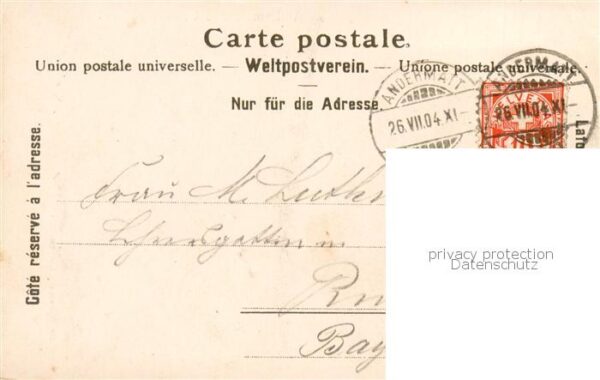 Carte postale.
Union postale universelle. — Weltpostverein. — Unione postale universale.
Nur für die Adresse.
ANDERMATT
26.VII.04.XI
ANDERMATT
26.VII.04.XI
Côté réservé à l'adresse.
Frau M. Luth
Bay
privacy protection
Datenschutz